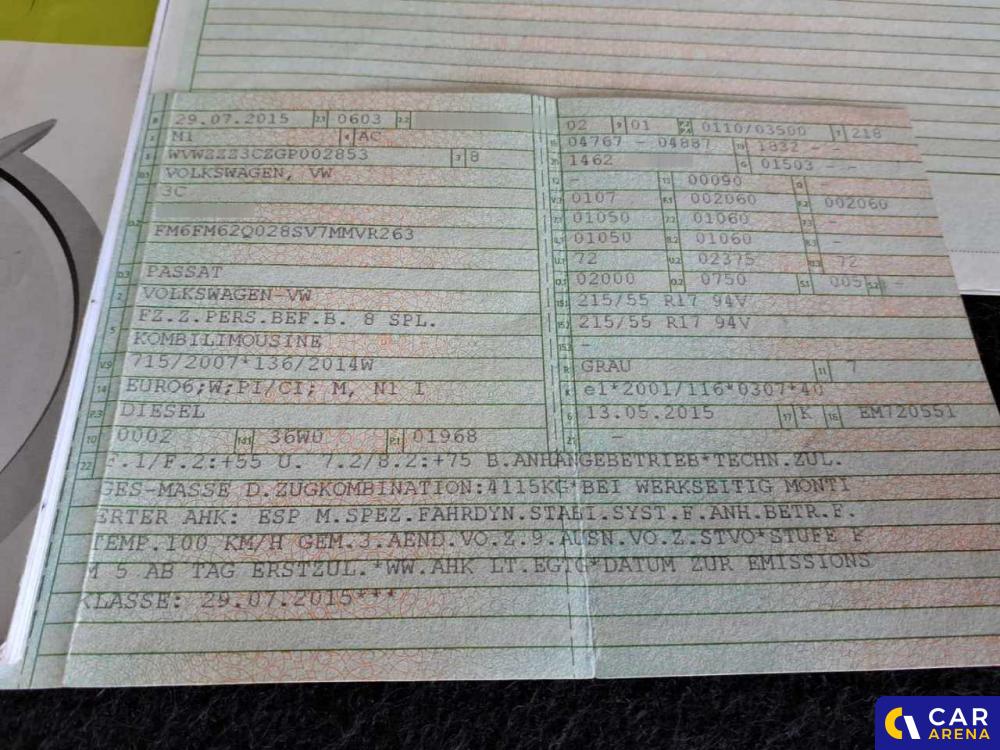 B 29.07.2015 2.1 0603 2.2
J M1 4 AC
E WVWZZZ3CZGP002853 3 8
D.1 VOLKSWAGEN, VW
3C
D.2
FM6FM62Q028SV7MMVR263
D.3 PASSAT
2 VOLKSWAGEN-VW
5 FZ.Z.PERS.BEF.B. 8 SPL.
KOMBILIMOUSINE
V.9 715/2007*136/2014W
14 EURO6;W;PI/CI; M, N1 I
P.3 DIESEL
10 0002 14.1 36W0 P.1 01968
02 9 01 P.2 P.4 0110/03500 T 218
18 04767 - 04887 19 1832 - -
20 1462 G 01503 - -
12 - 13 00090 Q -
V.7 0107 F.1 002060 F.2 002060
7.1 01050 7.2 01060 7.3 -
8.1 01050 8.2 01060 8.3 -
U.1 72 U.2 02375 U.3 72
O.1 02000 O.2 0750 S.1 005 S.2 -
15.1 215/55 R17 94V
15.2 215/55 R17 94V
15.3 -
R GRAU 11 7
K e1*2001/116*0307*40
6 13.05.2015 17 K 16 EM720551
21 -
22 F.1/F.2:+55 U. 7.2/8.2:+75 B.ANHÄNGEBETRIEB*TECHN.ZUL.
GES-MASSE D.ZUGKOMBINATION:4115KG*BEI WERKSEITIG MONTI
ERTER AHK: ESP M.SPEZ.FAHRDYN.STABI.SYST.F.ANH.BETR.F.
TEMP.100 KM/H GEM.3.AEND.VO.Z.9.AUSN.VO.Z.STVO*STUFE P
M 5 AB TAG ERSTZUL.*WW.AHK LT.EGTG*DATUM ZUR EMISSIONS
KLASSE: 29.07.2015***
CAR
ARENA